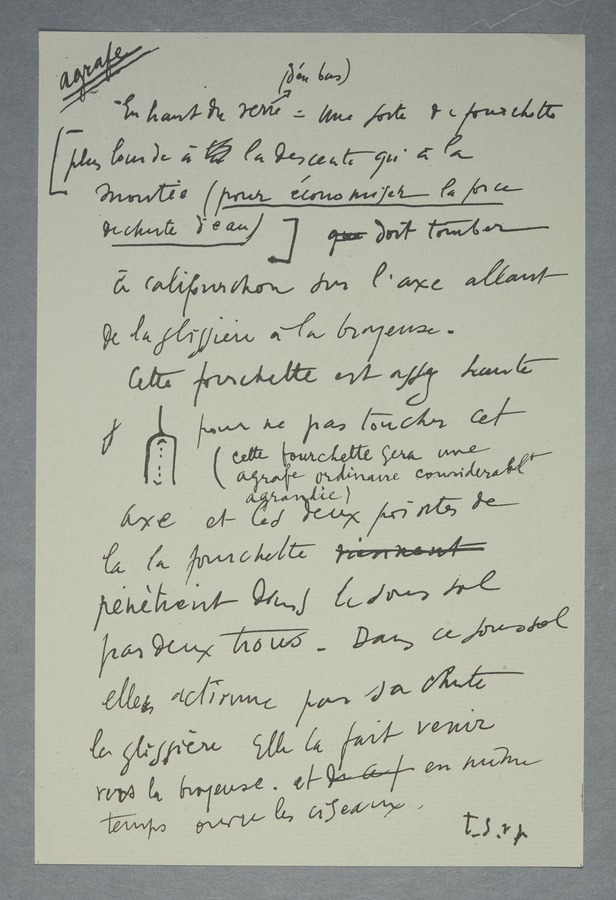 agrafe
(d'en bas)
En haut du verre = Une sorte de fourchette
[plus lourde à la descente qu'à la
montée (pour économiser la force
de chute d'eau)] que doit tomber
à califourchon sur l'axe allant
de la glissière à la broyeuse.
Cette fourchette est assez haute
pour ne pas toucher cet
(cette fourchette sera une
agrafe ordinaire considerablt
agrandie)
axe et les deux pointes de
la la fourchette viennent
pénètrent dans le sous sol
par deux trous. Dans ce sous sol
elle actionne par sa chute
la glissière Elle la fait venir
vers la broyeuse. et en même
temps ouvre les ciseaux.
T.S.v.p